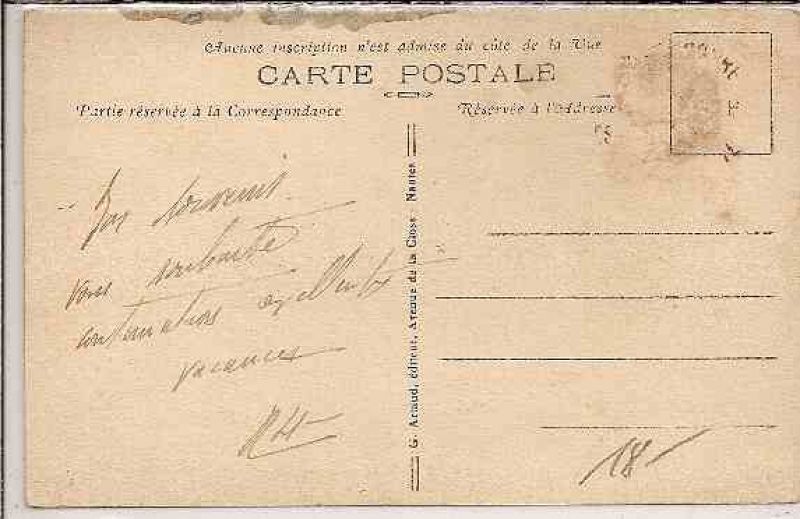 Aucune inscription n'est admise du côté de la Vue
CARTE POSTALE
Partie réservée à la Correspondance
Réservée à l'Adresse
souvenir
vous souhaite
excellentes
vacances
G. Artaud, éditeur, Avenue de la Close Nantes
18